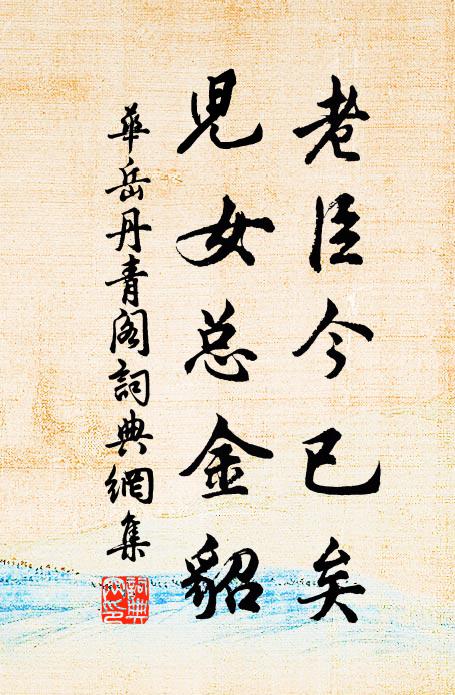 老臣今已矣
兒女总金貂
華岳丹青阁詞典網集